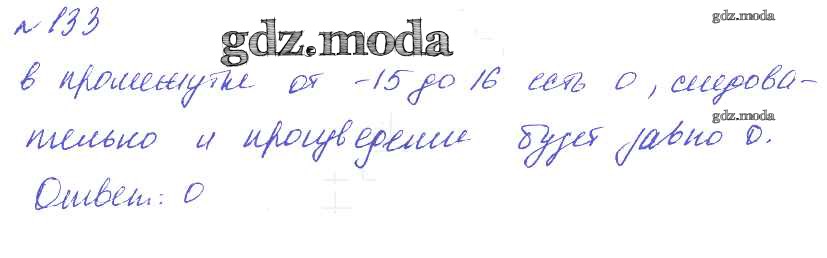 № 133
gdz.moda
gdz.moda
в промежутке от -15 до 16 есть 0, следова-
gdz.moda
тельно и произведение будет равно 0.
Ответ: 0